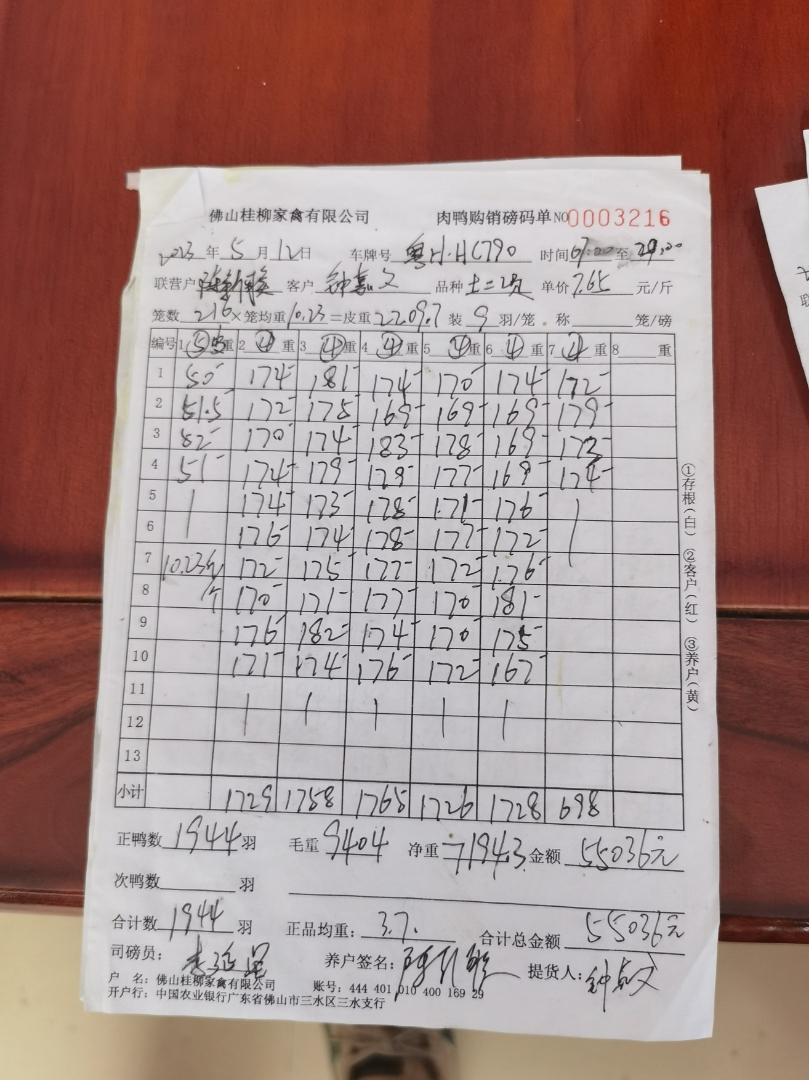 佛山桂柳家禽有限公司 肉鸭购销磅码单 NO 0003216
2023年5月12日 车牌号 粤H·HC790 时间 至
联营户 客户 钟嘉文 品种 土二 单价 7.65 元/斤
笼数 216 ×笼均重 10.23 =皮重 2209.7 装 9 羽/笼. 称 笼/磅
编号 1 ⑤ 重 2 ④ 重 3 ④ 重 4 ④ 重 5 ④ 重 6 ④ 重 7 ④ 重 8 重
1 50 174 181 174 170 174 172
2 51.5 172 175 169 169 169 179
3 52 170 174 183 178 169 173
4 51 174 179 179 177 169 174
5 174 173 178 171 176
6 176 174 178 177 172
7 10.23 172 175 177 172 176
8 170 171 177 170 181
9 176 182 174 170 175
10 171 174 176 172 167
11
12
13
小计 1729 1758 1765 1726 1728 698
正鸭数 1944 羽 毛重 9404 净重 7194.3 金额 55036元
次鸭数 羽
合计数 1944 羽 正品均重: 3.7. 合计总金额 55036元
司磅员: 养户签名: 提货人: 钟嘉文
户 名: 佛山桂柳家禽有限公司 账号: 444 401 010 400 169 29
开户行: 中国农业银行广东省佛山市三水区三水支行
①存根(白) ②客户(红) ③养户(黄)